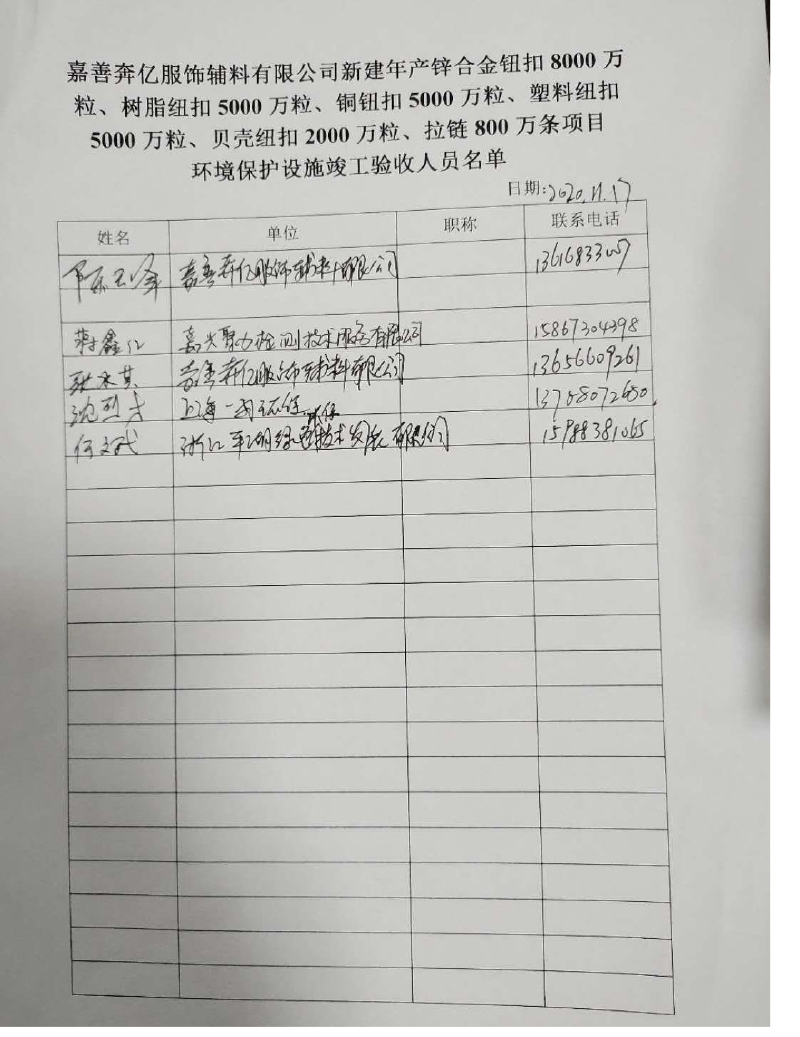 嘉善奔亿服饰辅料有限公司新建年产锌合金钮扣 8000 万
粒、树脂纽扣 5000 万粒、铜钮扣 5000 万粒、塑料纽扣
5000 万粒、贝壳纽扣 2000 万粒、拉链 800 万条项目
环境保护设施竣工验收人员名单
日期:2020.11.17
姓名 单位 职称 联系电话
嘉善奔亿服饰辅料有限公司
蒋鑫红 嘉兴聚力检测技术服务有限公司 15867304398
嘉善奔亿服饰辅料有限公司 13656609261
沈烈 上海一 环保 13708072680
何文武 浙江平湖绿色环保技术发展有限公司 15988381065